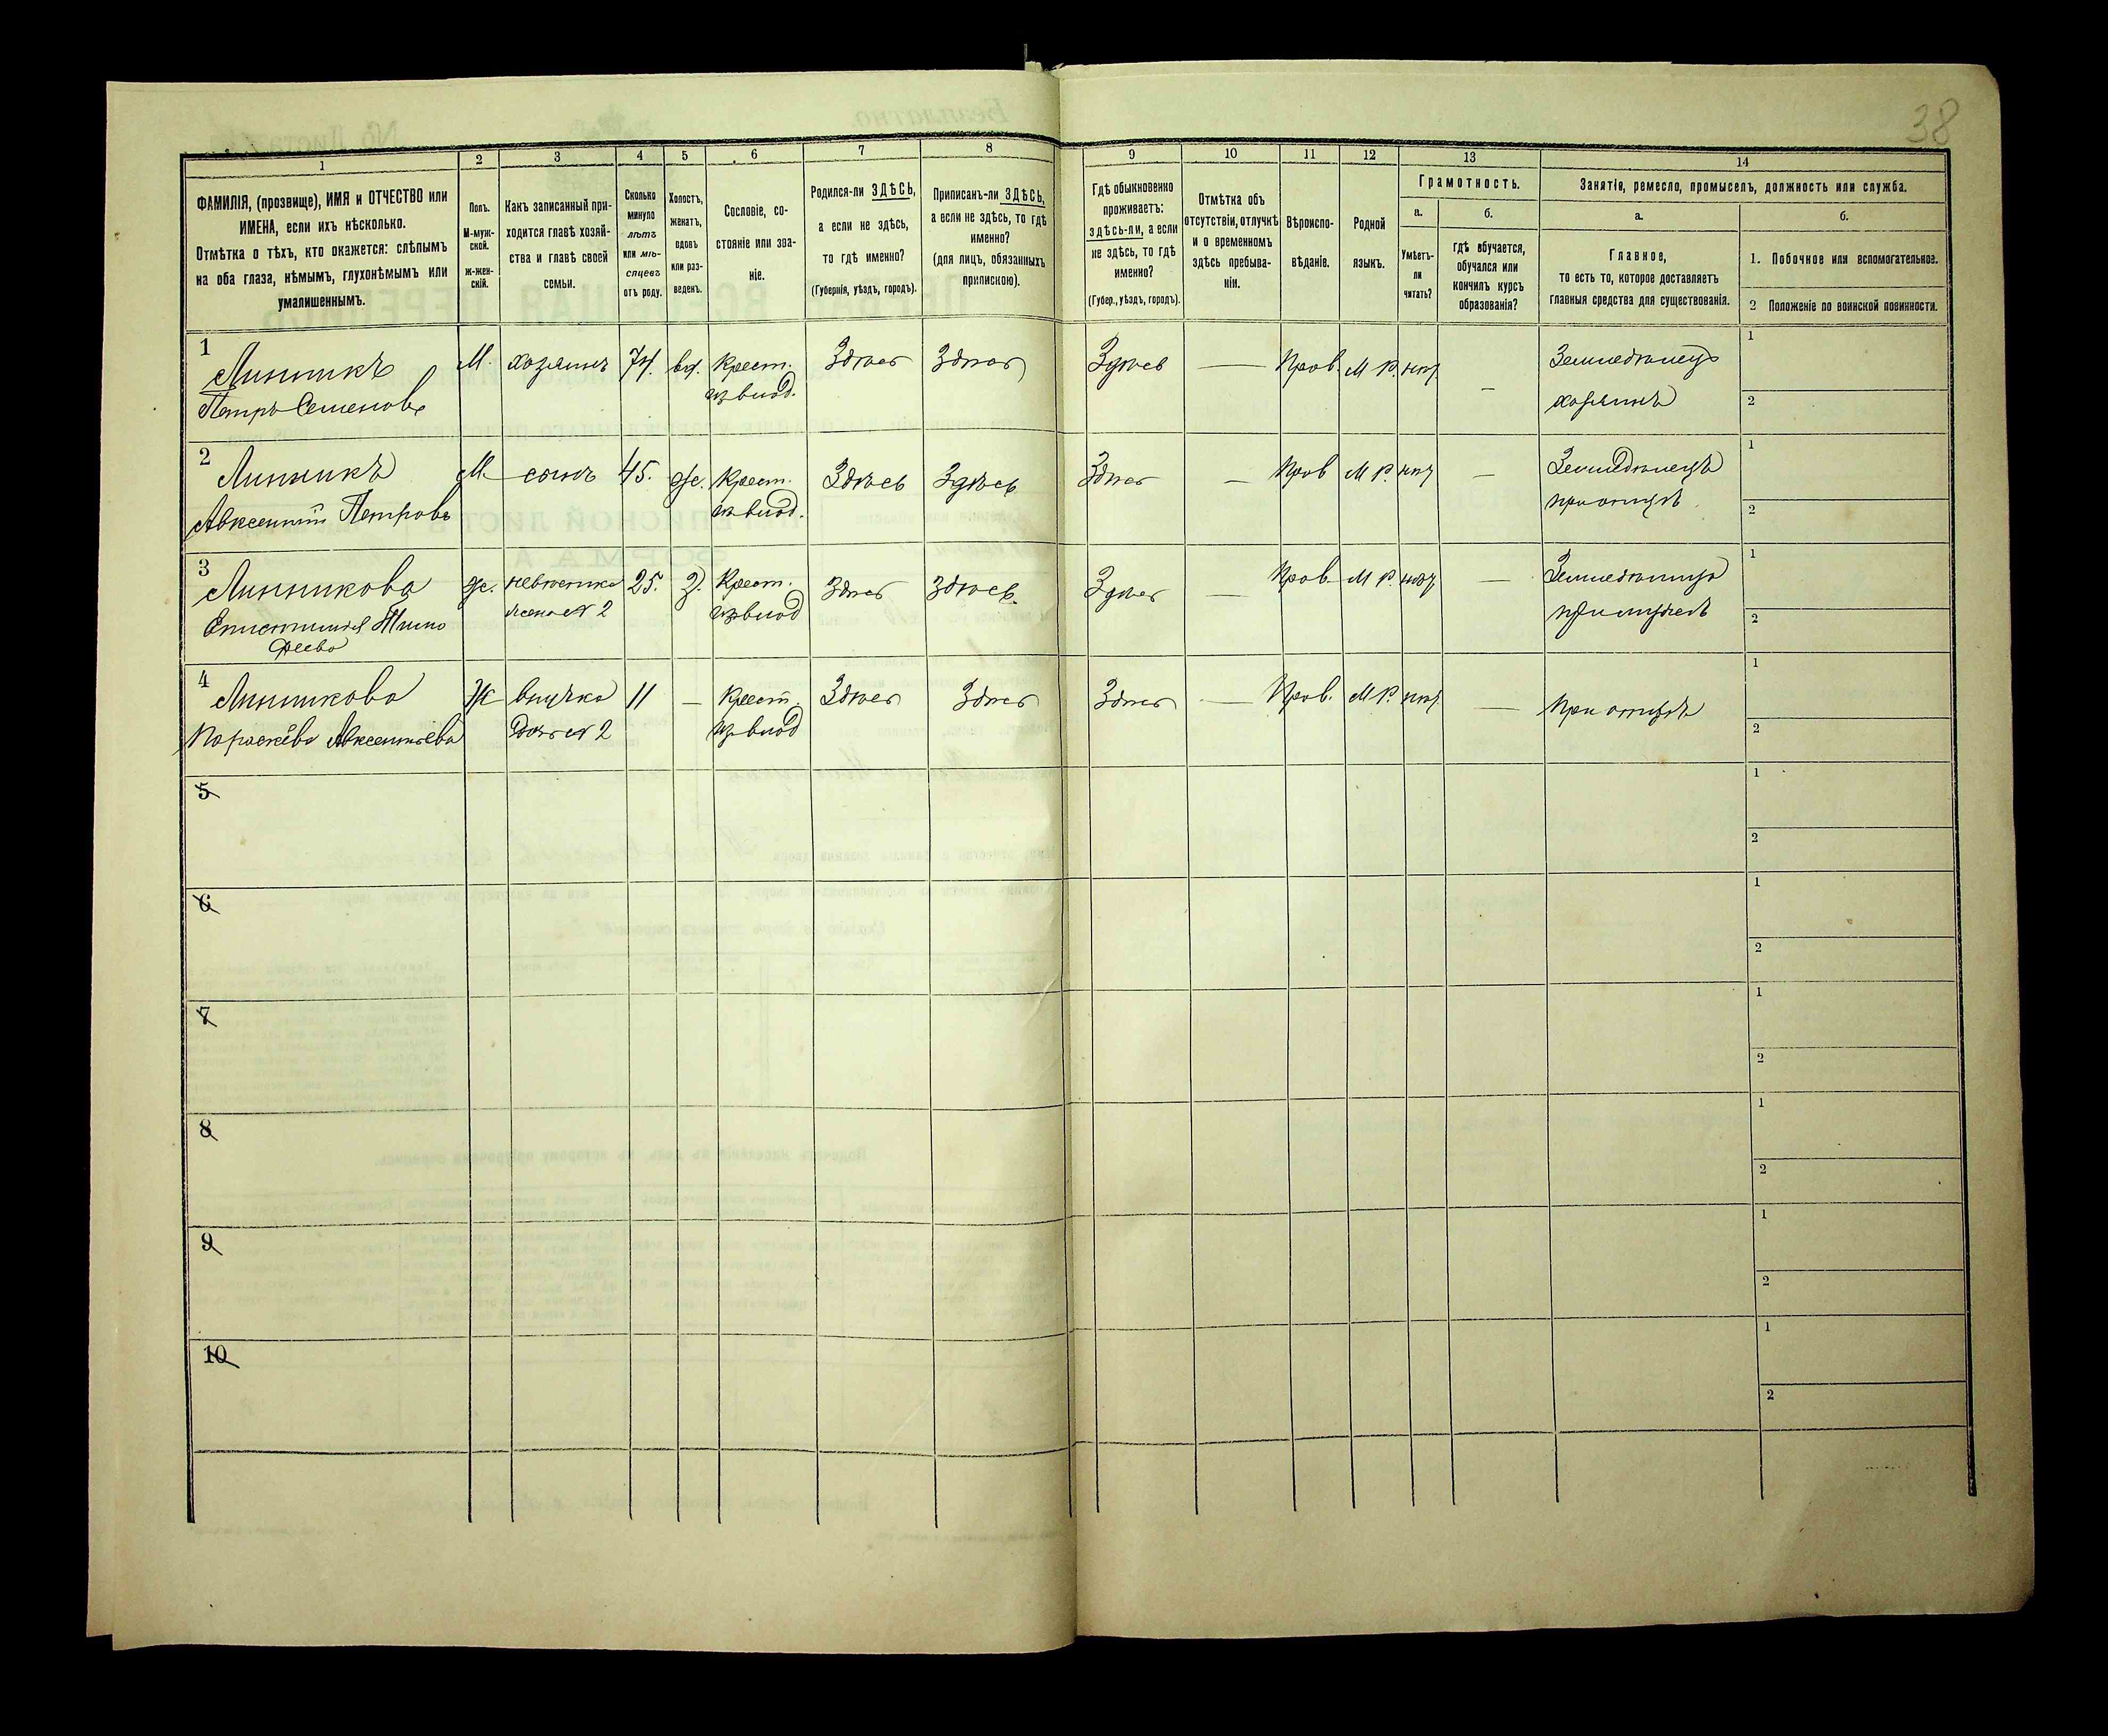 38
1 2 3 4 5 6 7 8 9 10 11 12 13 14
ФАМИЛІЯ, (прозвище), ИМЯ и ОТЧЕСТВО или
ИМЕНА, если ихъ нѣсколько.
Отмѣтка о тѣхъ, кто окажется: слѣпымъ
на оба глаза, нѣмымъ, глухонѣмымъ или
умалишеннымъ.
Полъ.
М-муж-
ской.
ж-жен-
скій.
Какъ записанный при-
ходится главѣ хозяй-
ства и главѣ своей
семьи.
Сколько
минуло
лѣтъ
или мѣ-
сяцевъ
отъ роду.
Холостъ,
женатъ,
вдовъ
или раз-
веденъ.
Сословіе, со-
стояніе или зва-
ніе.
Родился-ли ЗДѢСЬ,
а если не здѣсь,
то гдѣ именно?
(Губернія, уѣздъ, городъ).
Приписанъ-ли ЗДѢСЬ,
а если не здѣсь, то гдѣ
именно?
(для лицъ, обязанныхъ
припискою).
Гдѣ обыкновенно
проживаетъ:
здѣсь-ли, а если
не здѣсь, то гдѣ
именно?
(Губер., уѣздъ, городъ).
Отмѣтка объ
отсутствіи, отлучкѣ
и о временномъ
здѣсь пребыва-
ніи.
Вѣроиспо-
вѣданіе.
Родной
языкъ.
Грамотность.
а. б.
Умѣетъ-
ли
читать?
гдѣ обучается,
обучался или
кончилъ курсъ
образованія?
Занятія, ремесло, промыселъ, должность или служба.
а. б.
Главное,
то есть то, которое доставляетъ
главныя средства для существованія.
1. Побочное или вспомогательное.
2 Положеніе по воинской повинности.
1 Линникъ М. хозяинъ 74. вд. Крест. Здѣсь Здѣсь Здѣсь — Прав. М Р. нѣт. — Земледѣлецъ 1
Петръ Семеновъ из влад. хозяинъ 2
2 Линникъ М. сынъ 45. ж. Крест. Здѣсь Здѣсь Здѣсь — Прав М Р. нѣт — Земледѣлецъ 1
Авксентій Петровъ из влад. при отцѣ 2
3 Линникова ж. невѣстка 25. З. Крест. Здѣсь Здѣсь. Здѣсь — Прав. М Р. нѣт — 1
Епистимія Тимо жена № 2 из влад при мужѣ 2
феева
4 Линникова Ж внучка 11 — Крест. Здѣсь Здѣсь Здѣсь — Прав. М Р. нѣт. — При отцѣ 1
Параскева Авксентьева дочь № 2 из влад 2
5 1
2
6 1
2
7 1
2
8 1
2
9 1
2
10 1
2